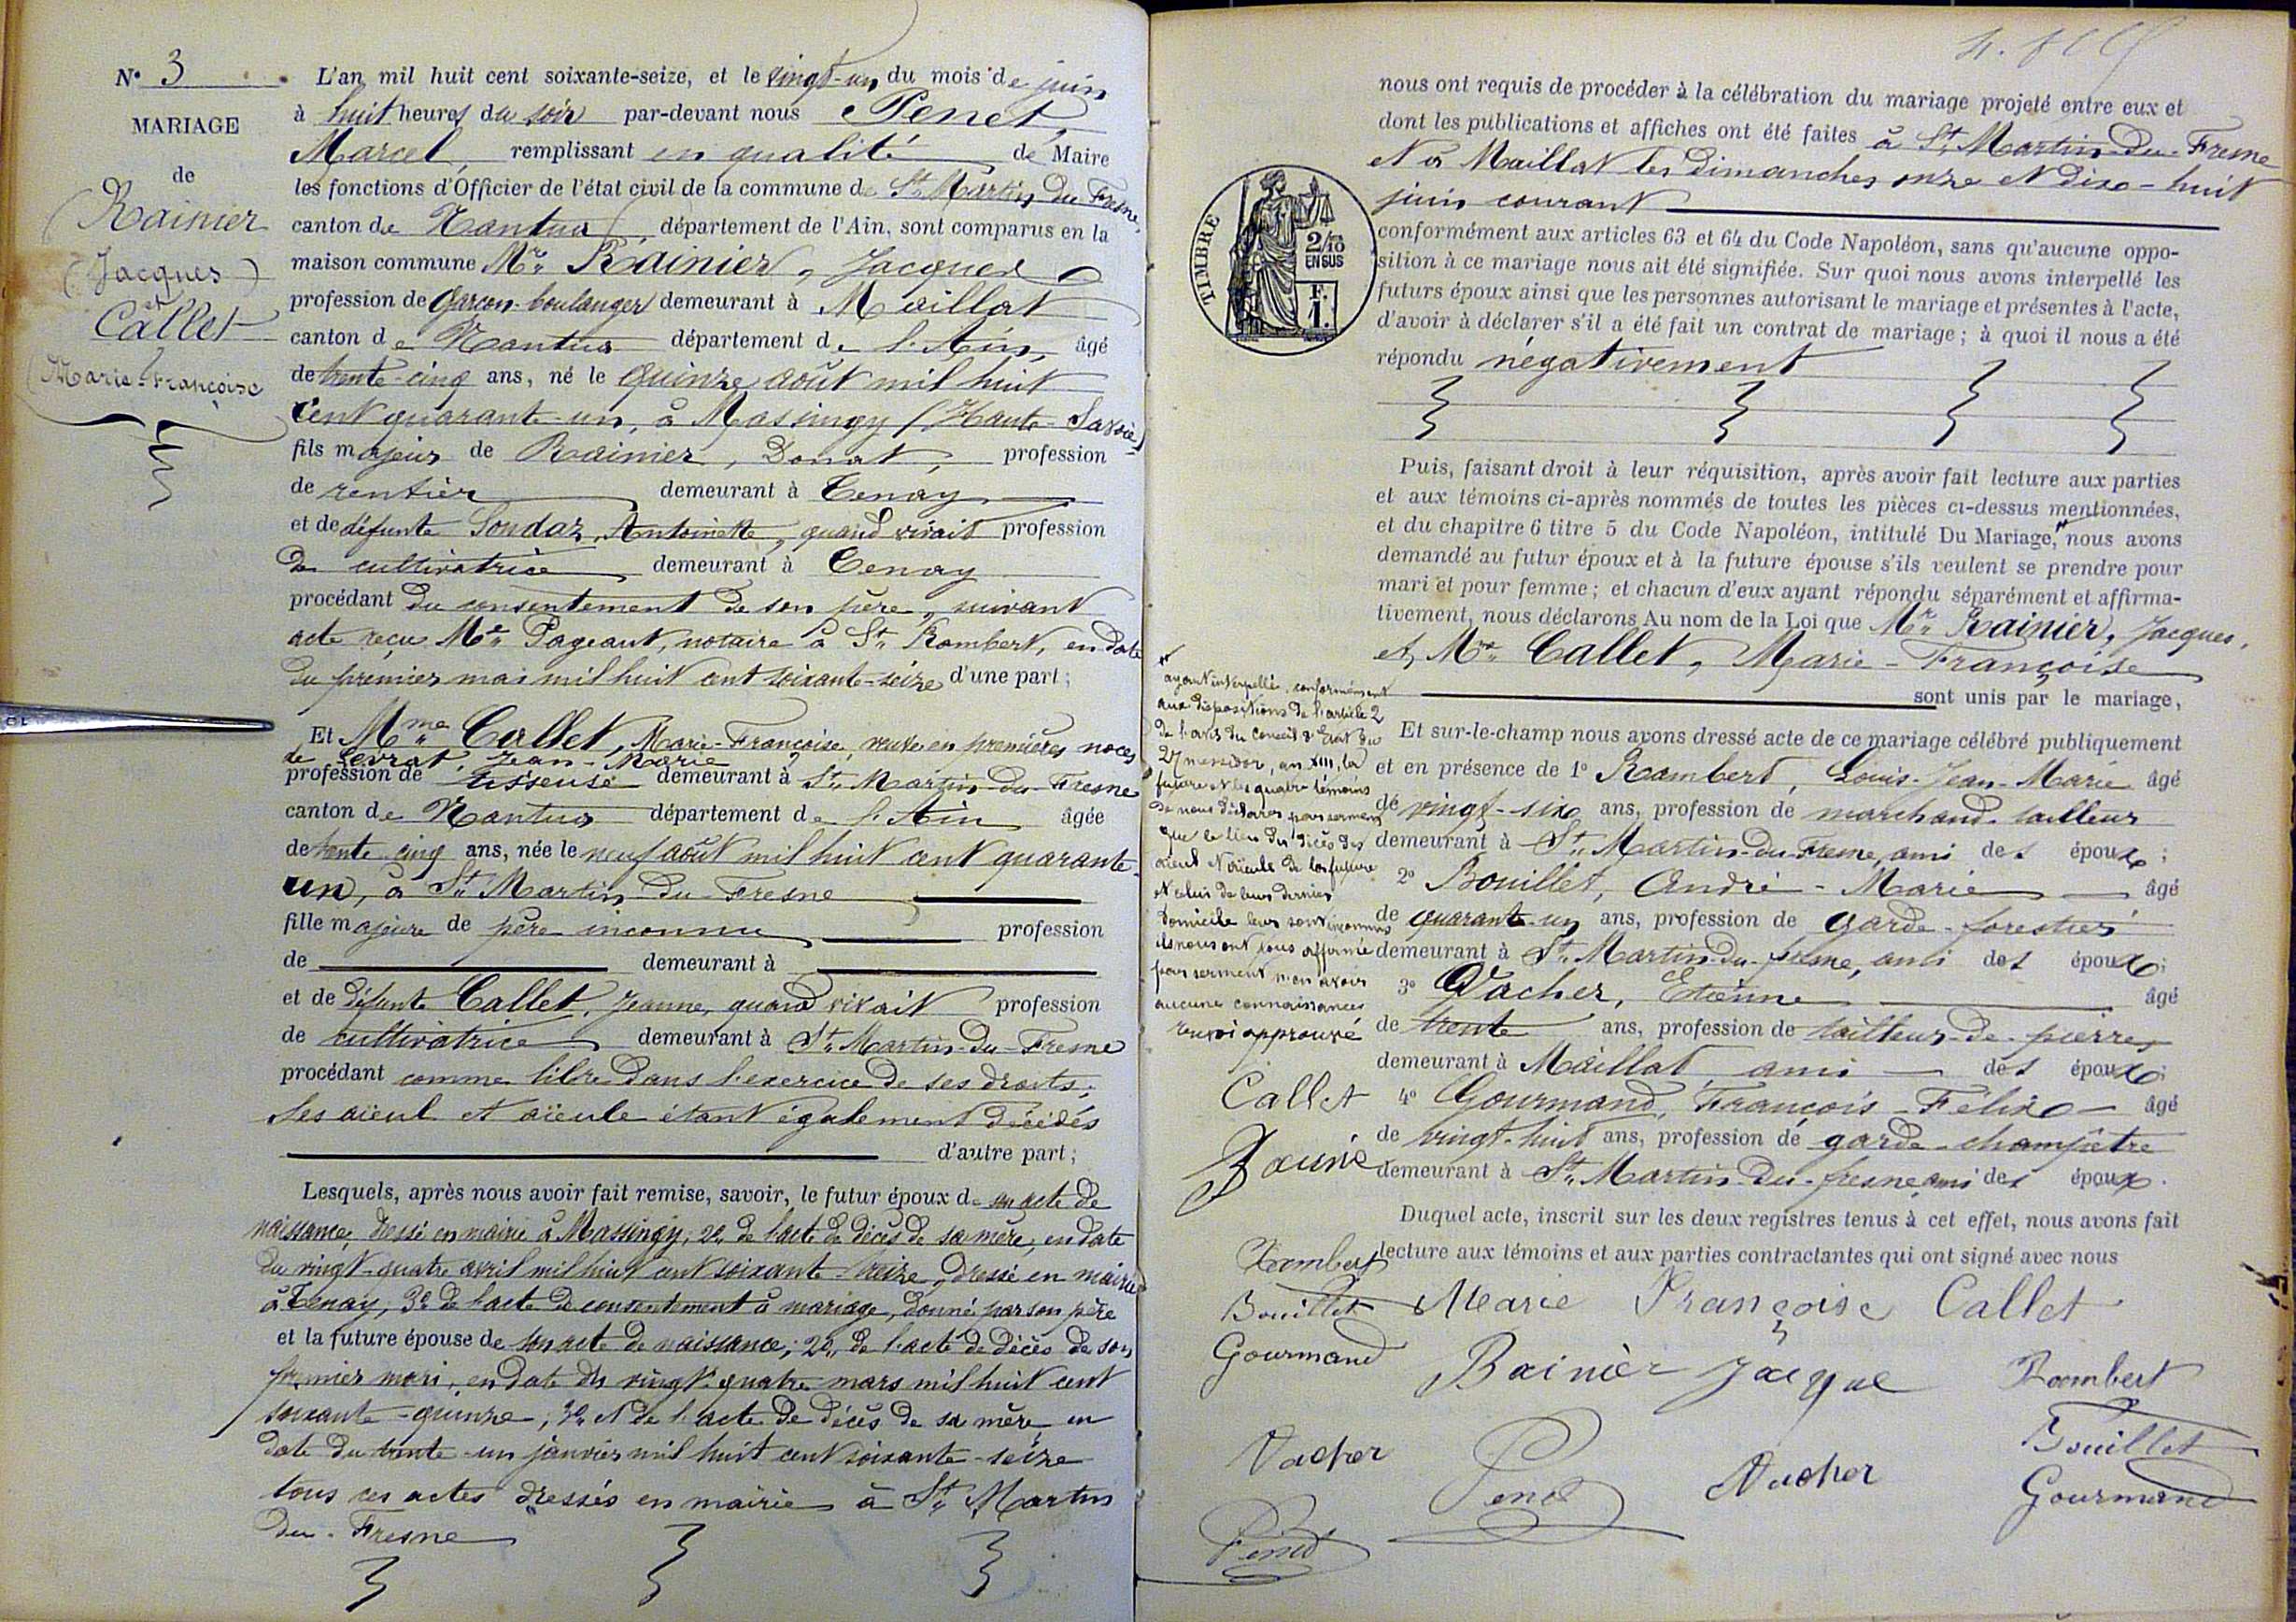 N° 3
MARIAGE
de
Rainier
(Jacques)
et
Callet
(Marie-Françoise
L'an mil huit cent soixante-seize, et le vingt-un du mois de juin
à huit heures du soir par-devant nous Penet,
Marcel, remplissant en qualité de Maire
les fonctions d'Officier de l'état civil de la commune de St. Martin du Fresne,
canton de Nantua, département de l'Ain, sont comparus en la
maison commune Mr. Rainier, Jacques
profession de Garçon-boulanger demeurant à Maillat
canton de Nantua département de l'Ain, âgé
de trente-cinq ans, né le quinze août mil huit
cent quarante-un, à Massingy (Haute-Savoie)
fils majeur de Rainier, Donat, profession
de rentier demeurant à Tenay
et de défunte Soudaz, Antoinette, quand vivait profession
de cultivatrice demeurant à Tenay
procédant du consentement de son père, suivant
acte reçu Me. Pageaut, notaire à St. Rambert, en date
du premier mai mil huit cent soixante-seize d'une part;
Et Mme Callet, Marie-Françoise, veuve en premières noces
de Levrat, Jean-Marie
profession de tisseuse demeurant à St. Martin-du-Fresne
canton de Nantua département de l'Ain âgée
de trente-cinq ans, née le neuf août mil huit cent quarante-
un, à St. Martin-du-Fresne
fille majeure de père inconnu profession
de demeurant à
et de défunte Callet, Jeanne, quand vivait profession
de cultivatrice demeurant à St. Martin-du-Fresne
procédant comme libre dans l'exercice de ses droits;
Ses aïeul et aïeule étant également décédés
d'autre part;
Lesquels, après nous avoir fait remise, savoir, le futur époux de son acte de
naissance, dressé en mairie à Massingy; 2°. de l'acte de décès de sa mère, en date
du vingt-quatre avril mil huit cent soixante-treize, dressé en mairie
à Tenay, 3°. de l'acte de consentement à mariage, donné par son père
et la future épouse de son acte de naissance; 2°. de l'acte de décès de son
premier mari, en date du vingt-quatre mars mil huit cent
soixante-quinze; 3°. et de l'acte de décès de sa mère en
date du trente-un janvier mil huit cent soixante-seize
tous ces actes dressés en mairie à St. Martin
du-Fresne
nous ont requis de procéder à la célébration du mariage projeté entre eux et
dont les publications et affiches ont été faites à St. Martin-du-Fresne
et à Maillat les dimanches onze et dix-huit
juin courant
TIMBRE
2/10
EN SUS
F.
1.
conformément aux articles 63 et 64 du Code Napoléon, sans qu'aucune oppo-
sition à ce mariage nous ait été signifiée. Sur quoi nous avons interpellé les
futurs époux ainsi que les personnes autorisant le mariage et présentes à l'acte,
d'avoir à déclarer s'il a été fait un contrat de mariage; à quoi il nous a été
répondu négativement
Puis, faisant droit à leur réquisition, après avoir fait lecture aux parties
et aux témoins ci-après nommés de toutes les pièces ci-dessus mentionnées,
et du chapitre 6 titre 5 du Code Napoléon, intitulé Du Mariage, nous avons
demandé au futur époux et à la future épouse s'ils veulent se prendre pour
mari et pour femme; et chacun d'eux ayant répondu séparément et affirma-
tivement, nous déclarons Au nom de la Loi que Mr. Rainier, Jacques,
et Me. Callet, Marie-Françoise
sont unis par le mariage,
ayant interpellé, conformément
aux dispositions de l'article 2
de l'avis du conseil d'Etat du
27 messidor, an XIII, la
future et les quatre témoins
de nous déclarer par serment
que le lieu du décès des
aïeul et aïeule de la future
et celui de leurs derniers
domicile leur sont inconnus
ils nous ont tous affirmé
par serment n'en avoir
aucune connaissance
renvoi approuvé
Callet
Rainié
Rambert
Bouillet
Gourmand
Vacher
Penet
Et sur-le-champ nous avons dressé acte de ce mariage célébré publiquement
et en présence de 1° Rambert, Louis-Jean-Marie âgé
de vingt-six ans, profession de marchand-tailleur
demeurant à St. Martin-du-Fresne, ami des époux;
2° Bouillet, André-Marie âgé
de quarante-un ans, profession de garde-forestier
demeurant à St. Martin-du-fresne, ami des époux;
3° Vacher, Etienne âgé
de trente ans, profession de tailleur-de-pierres
demeurant à Maillat ami des époux;
4° Gourmand, François-Félix âgé
de vingt-huit ans, profession de garde-champêtre
demeurant à St. Martin-du-fresne ami des époux.
Duquel acte, inscrit sur les deux registres tenus à cet effet, nous avons fait
lecture aux témoins et aux parties contractantes qui ont signé avec nous
Marie Françoise Callet
Rainièr Jacque Rambert
Bouillet
Penet Vacher Gourmand